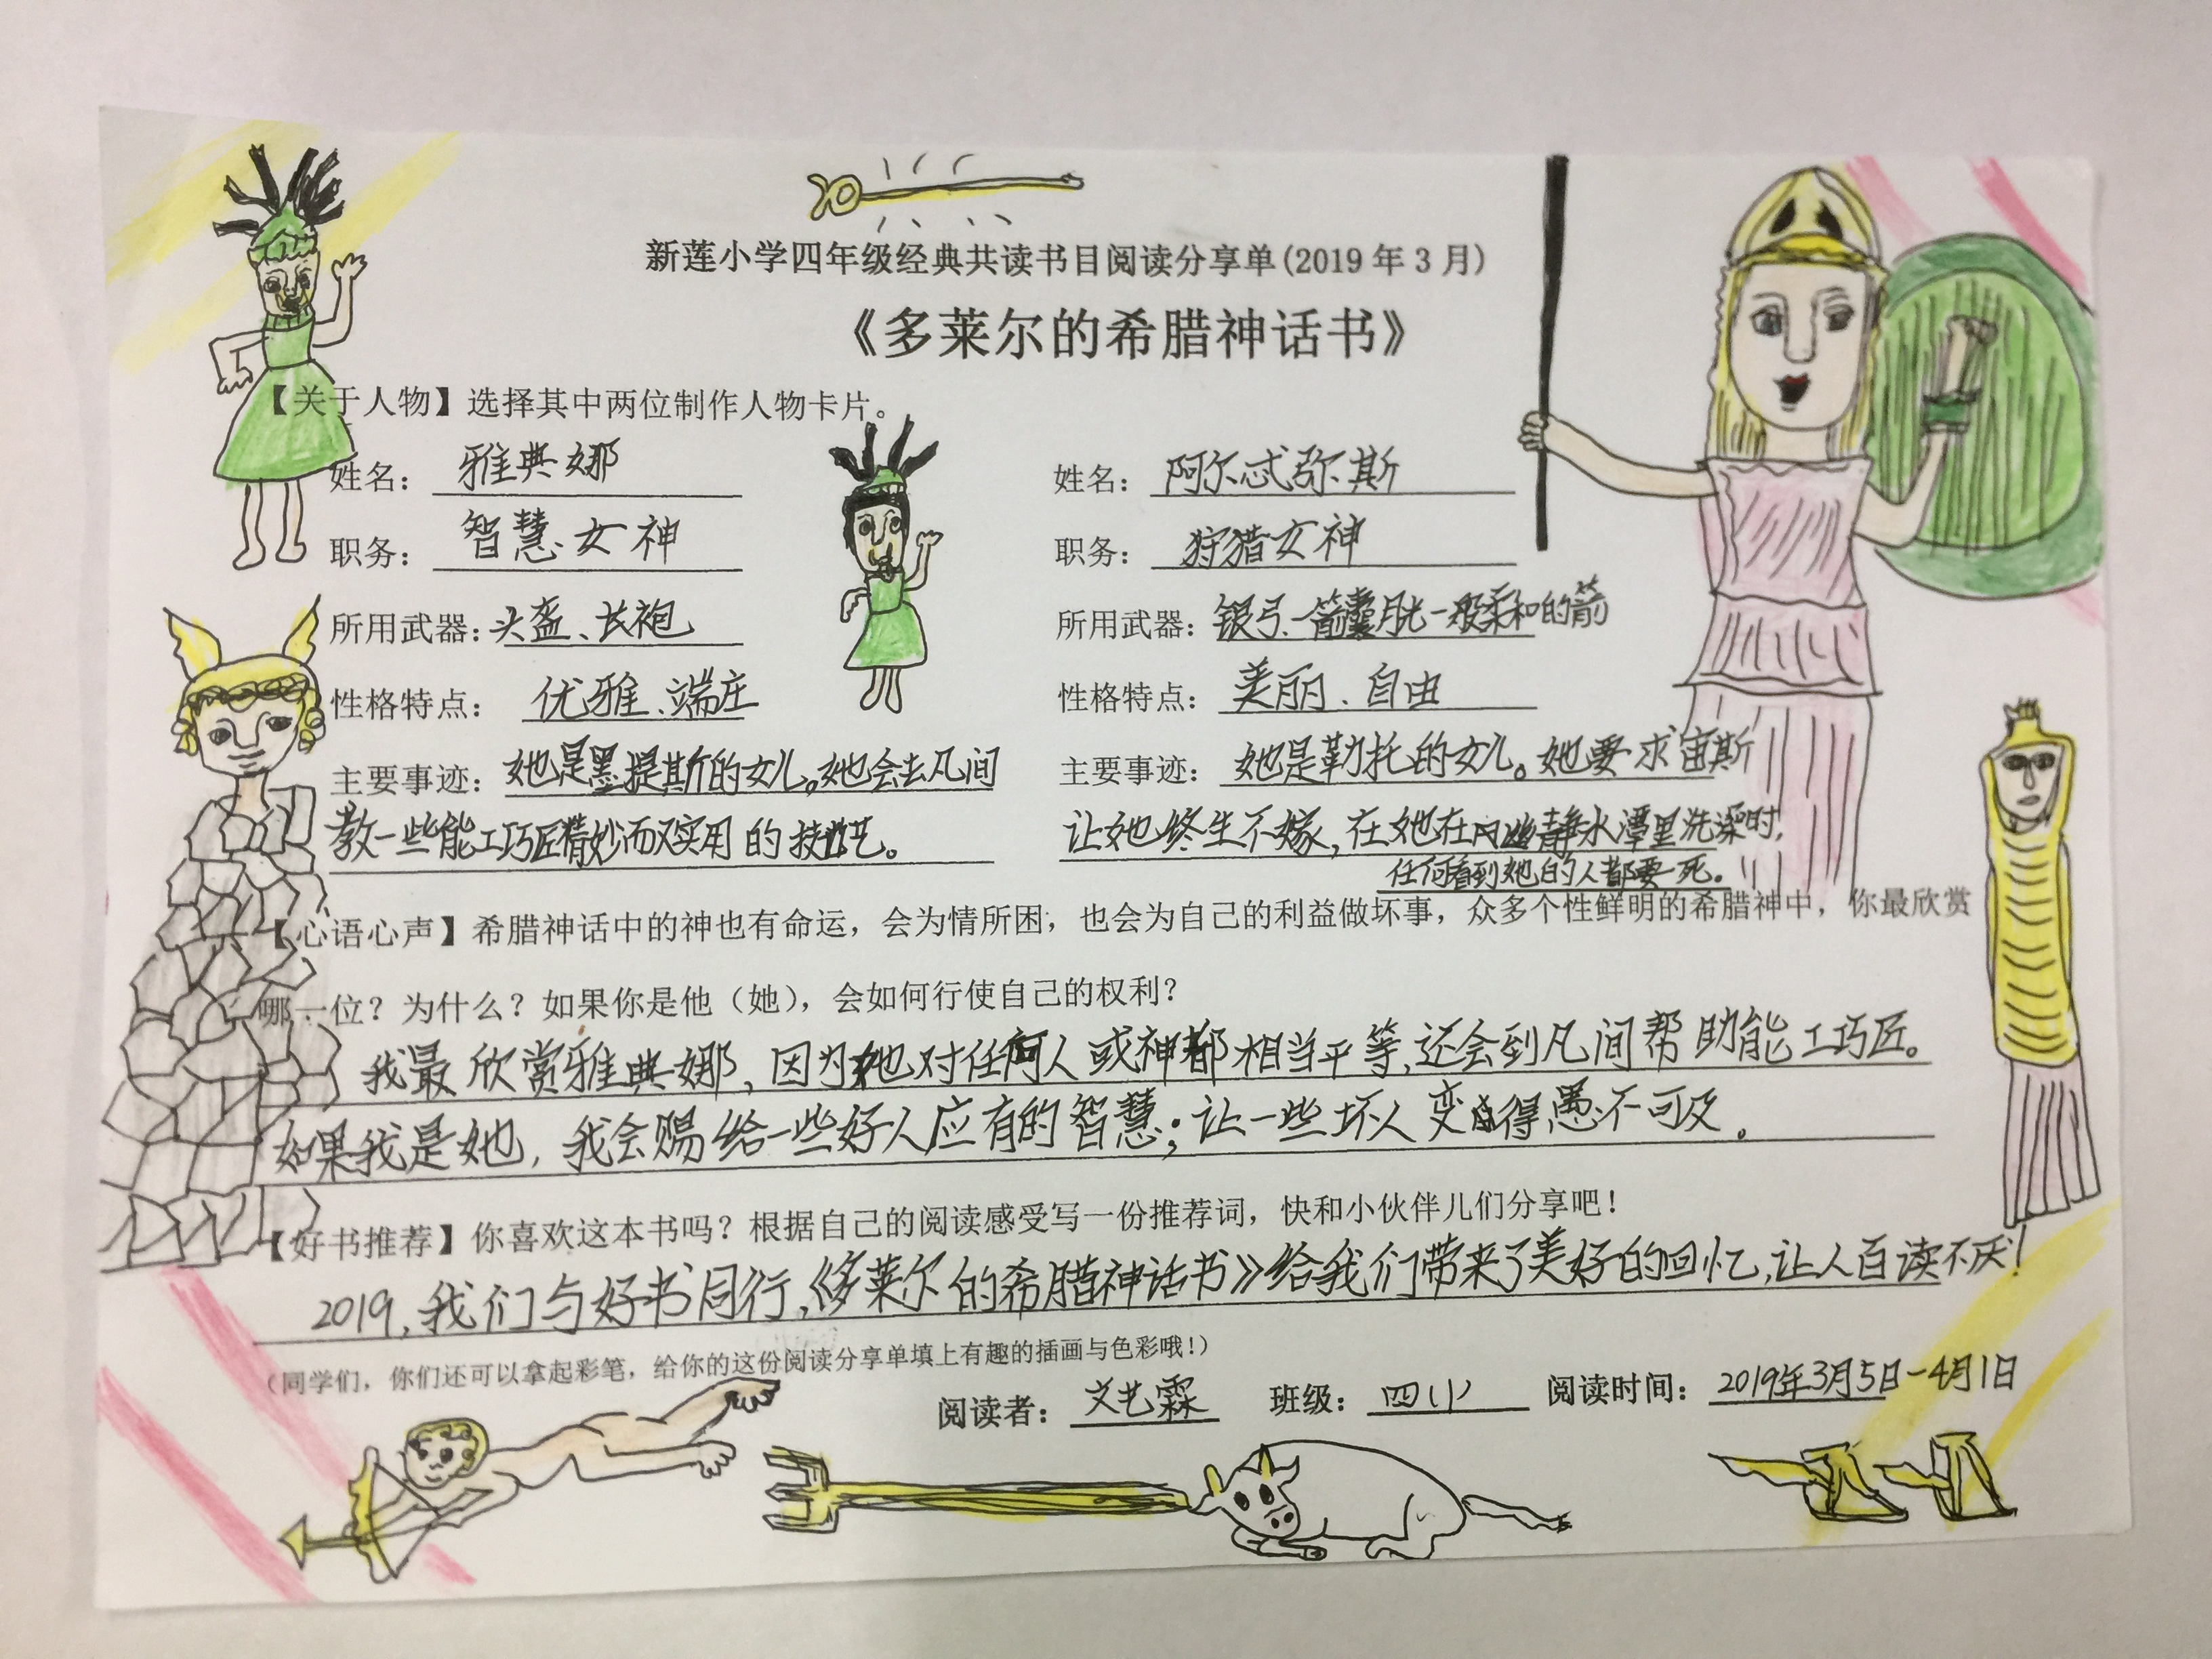 新莲小学四年级经典共读书目阅读分享单(2019年3月)
《多莱尔的希腊神话书》
【关于人物】选择其中两位制作人物卡片。
姓名：雅典娜
职务：智慧女神
所用武器：头盔、长袍
性格特点：优雅、端庄
主要事迹：她是墨提斯的女儿。她会去凡间
教一些能工巧匠精妙而又实用的技艺。
姓名：阿尔忒弥斯
职务：狩猎女神
所用武器：银弓、一箭囊月光一般柔和的箭
性格特点：美丽、自由
主要事迹：她是勒托的女儿。她要求宙斯
让她终生不嫁，在她在幽静水潭里洗澡时，
任何看到她的人都要死。
【心语心声】希腊神话中的神也有命运，会为情所困，也会为自己的利益做坏事，众多个性鲜明的希腊神中，你最欣赏
哪一位？为什么？如果你是他（她），会如何行使自己的权利？
我最欣赏雅典娜，因为她对任何人或神都相当平等，还会到凡间帮助能工巧匠。
如果我是她，我会赐给一些好人应有的智慧；让一些坏人变得愚不可及。
【好书推荐】你喜欢这本书吗？根据自己的阅读感受写一份推荐词，快和小伙伴儿们分享吧！
2019，我们与好书同行，《多莱尔的希腊神话书》给我们带来了美好的回忆，让人百读不厌！
（同学们，你们还可以拿起彩笔，给你的这份阅读分享单填上有趣的插画与色彩哦！）
阅读者：文艺霖 班级：四(1) 阅读时间：2019年3月5日-4月1日